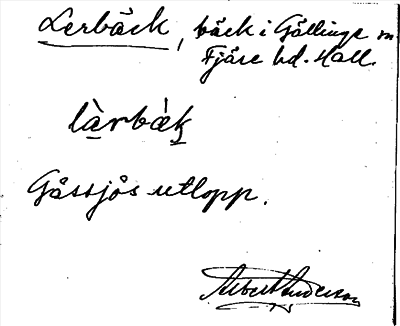 Lerbäck, bäck i Gällinge sn
Fjäre hd. Hall.
làrbæ̀k
Gåssjös utlopp.
Albert Anderson